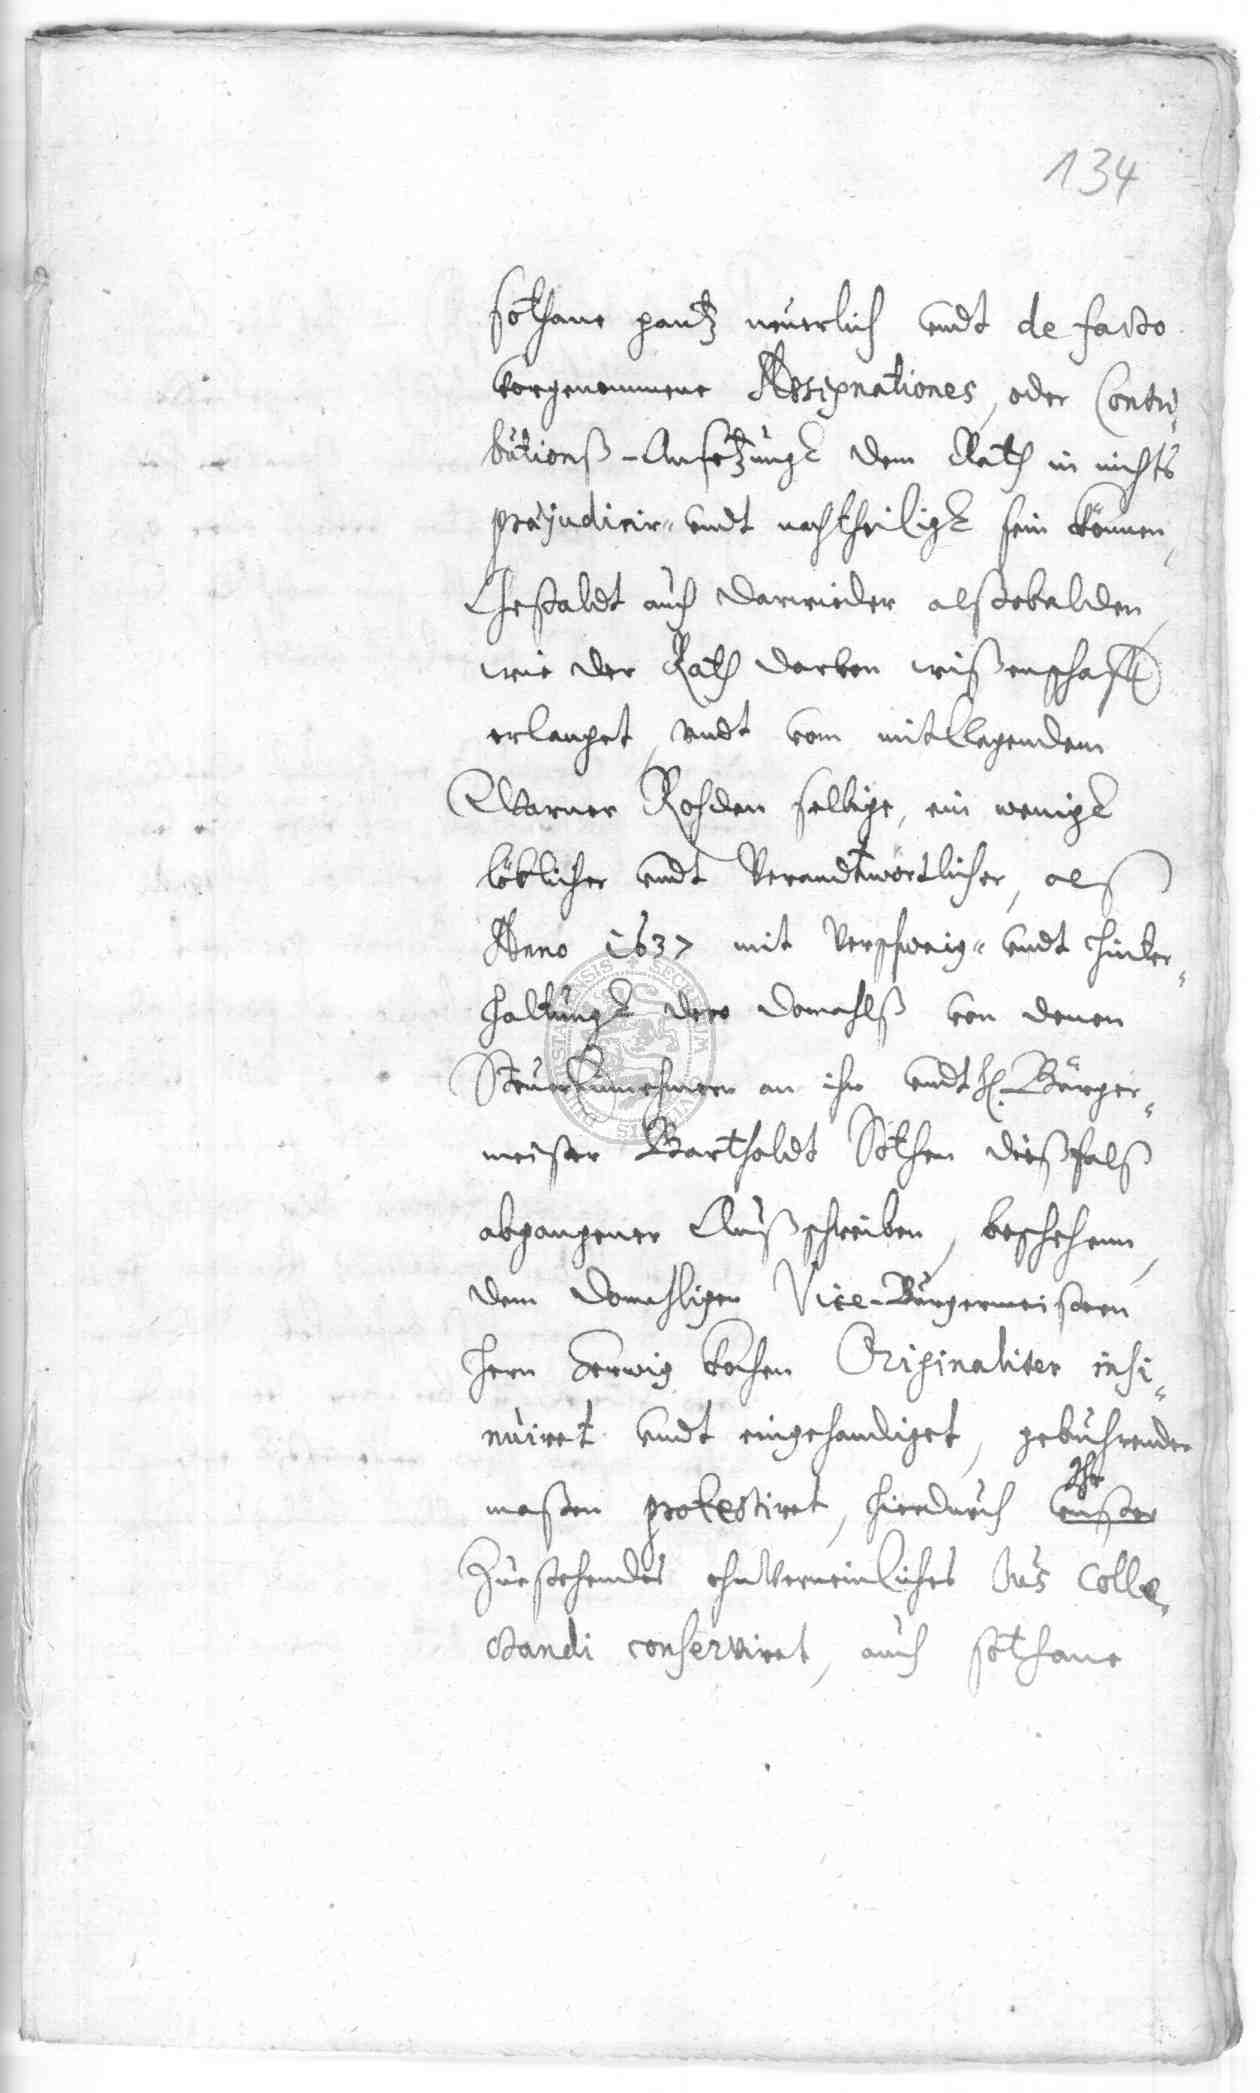 134
sothane gantz neuerlich undt de facto
vorgenommene Assignationes, oder Contri„
butionß-Ansetzung dem Rath in nichts
praejudicir„ undt nachtheilig sein können,
Gestaldt auch darwieder alßobalden,
wie der Rath darvon wißenschafft
erlanget, undt vom mitklagendem
Warner Rohden selbige, ein wenig
löblicher undt Verandtwortlicher, alß
Anno 1637 mit Verschweig„ undt hinter„
haltung der domahlß von denen
Steuer Einnehmern an ihn undt H. Bürger„
meister Bartholdt Bothen dießfalß
abgangener Außschreiben, beschehenn,
dem domahligen Vice-Bürgermeistern
Hern Herwig Kochen Originaliter insi„
nuiret undt eingehandiget, gebührender
maßen protestiret, hierdurch unßer
Ihr
Zuestehendes ohnverneinliches Jus Colle„
ctandi conserviret, auch sothane
SECRETUM
CIVITATIS DUDERSTATENSIS